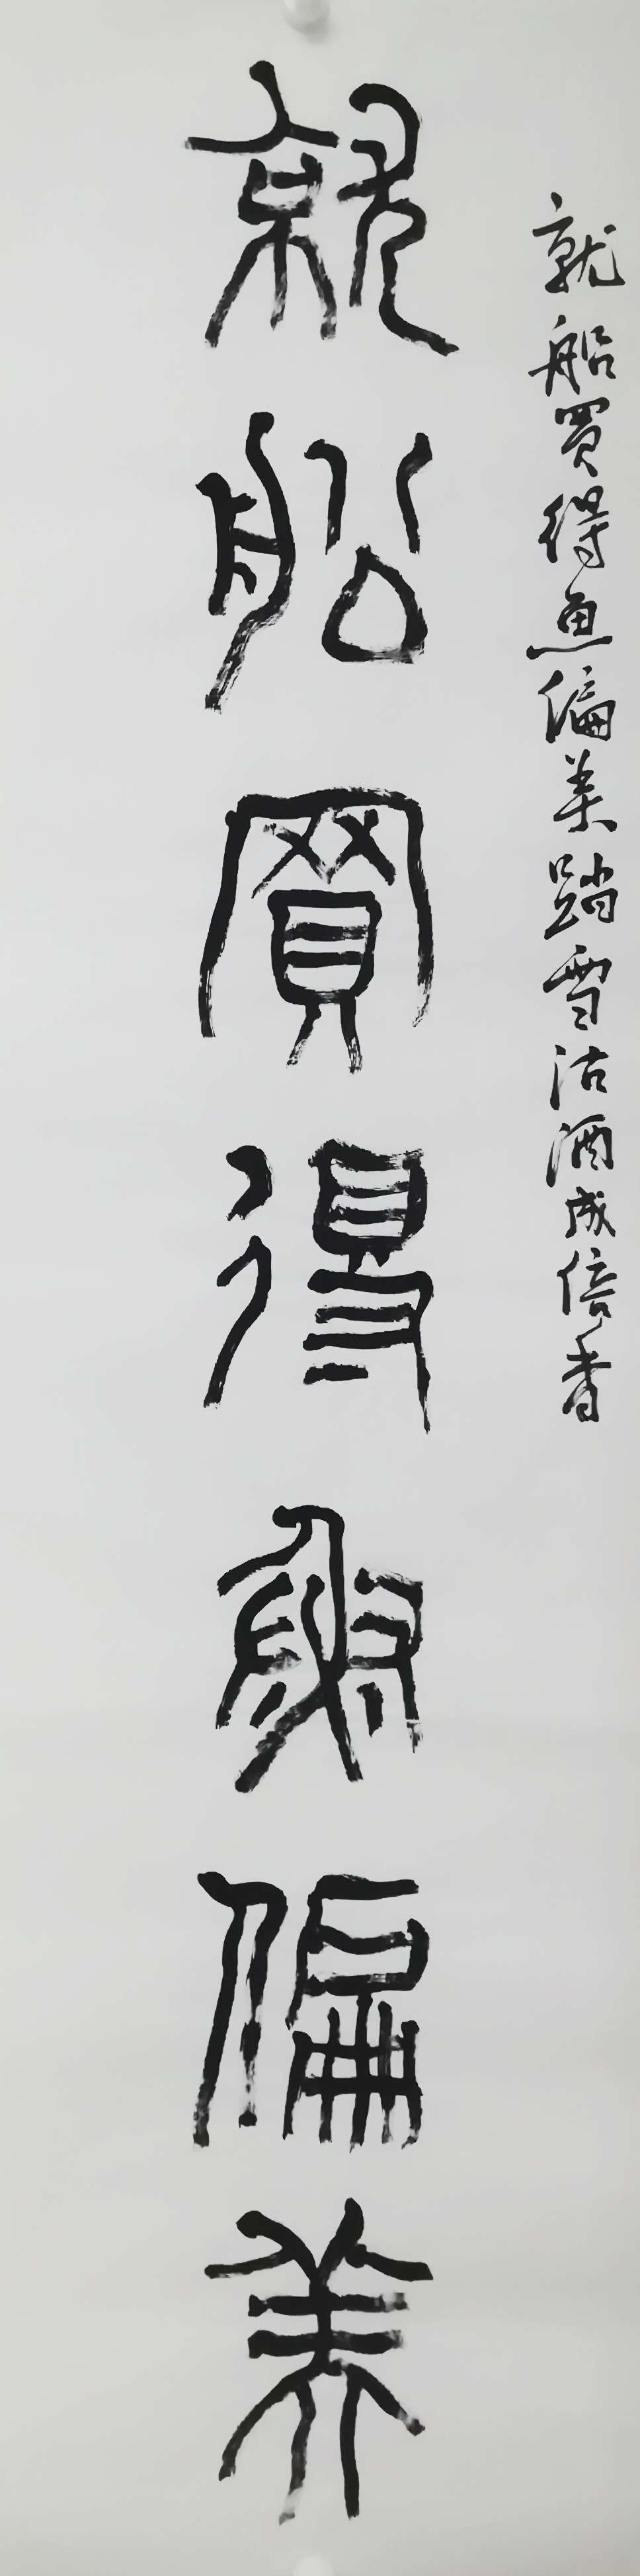 就船買得魚偏美踏雪沽酒成倍香
就船買得魚偏美